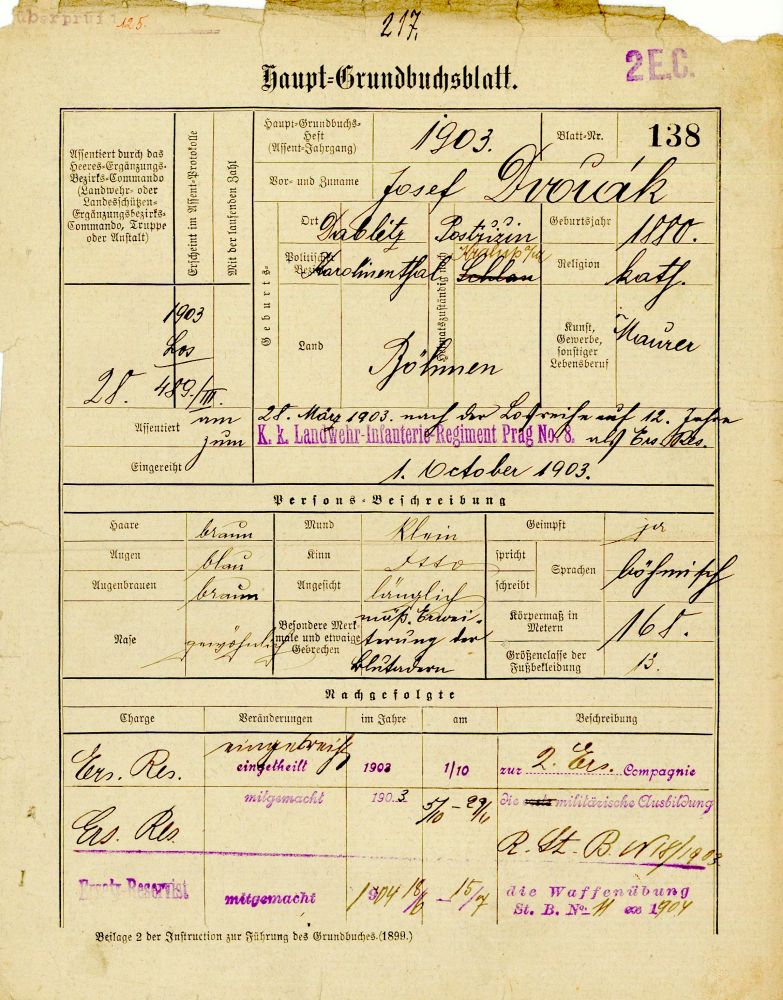 überprüft
125.
217.
2 E.C.
Haupt-Grundbuchsblatt.
Assentiert durch das
Heeres-Ergänzungs-
Bezirks-Commando
(Landwehr- oder
Landesschützen-
Ergänzungsbezirks-
Commando, Truppe
oder Anstalt)
Erscheint im Assent-Protokolle
Mit der laufenden Zahl
Haupt-Grundbuchs-
Heft
(Assent-Jahrgang)
1903.
Blatt-Nr.
138
Vor- und Zuname
Josef Dvořák
Geburts-
Ort
Dablitz
Politischer
Bezirk
Karolinenthal
Land
Böhmen
Heimatszuständig nach
Postřizin
Schlan
Geburtsjahr
1880.
Religion
kath.
Kunst,
Gewerbe,
sonstiger
Lebensberuf
Maurer
1903
Los
28. 489/III.
Assentiert
am
28. März 1903. nach der Losreihe auf 12. Jahre
zum
K. k. Landwehr-Infanterie-Regiment Prag No. 8. als Ers. Res.
Eingereiht
1. October 1903.
Persons-Beschreibung
Haare braun Mund klein Geimpft ja
Augen blau Kinn dtto spricht
Sprachen böhmisch
Augenbrauen braun Angesicht länglich schreibt
Nase gewöhnlich
Besondere Merk-
male und etwaige
Gebrechen
mäß. Erwei-
terung der
Blutadern
Körpermaß in
Metern
168.
Größenclasse der
Fußbekleidung
13.
Nachgefolgte
Charge Veränderungen im Jahre am Beschreibung
Ers. Res. eingetheilt 1903 1/10 zur 2. Ers. Compagnie
mitgemacht 1903 5/10 – die militärische Ausbildung
Ers. Res.
R. St. B. N 18/1903
Ersatz-Reservist mitgemacht 1904 18/6 – 15/7 die Waffenübung
St. B. No. 11 ex 1904
Beilage 2 der Instruction zur Führung des Grundbuches. (1899.)